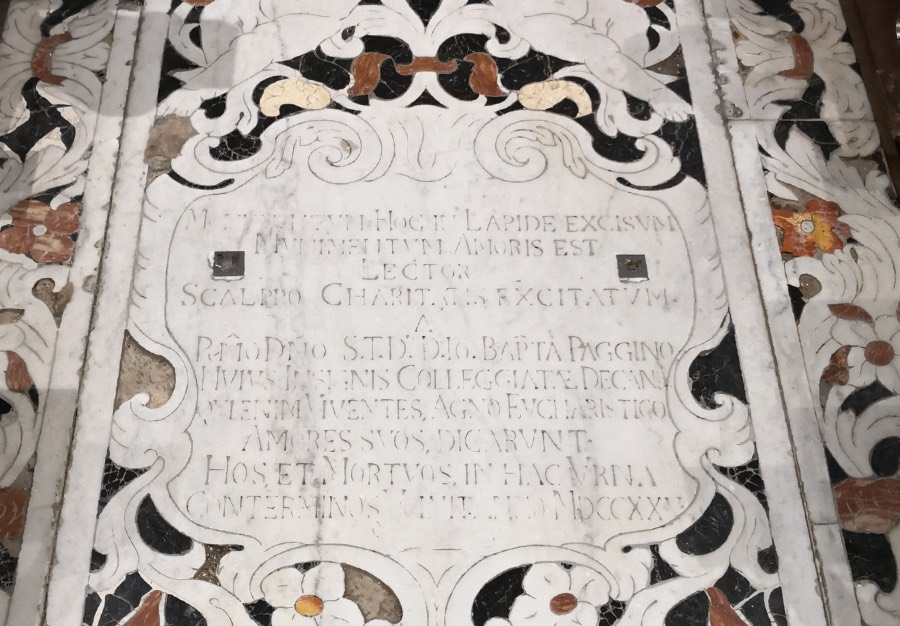 HOC IN LAPIDE EXCISVM
MVNIMENTVM AMORIS EST
LECTOR
SCALPRO CHARITATIS EXCITATVM
A
R.MO DNO S.T.D. D. IO. BAPTA PAGGINO
HVIVS INSIGNIS COLLEGGIATÆ DECANO
QVI ENIM VIVENTES, AGNO EVCHARISTICO
AMORES SVOS, DICARVNT
HOS, ET MORTVOS, IN HAC VRNA
CONTERMINOS